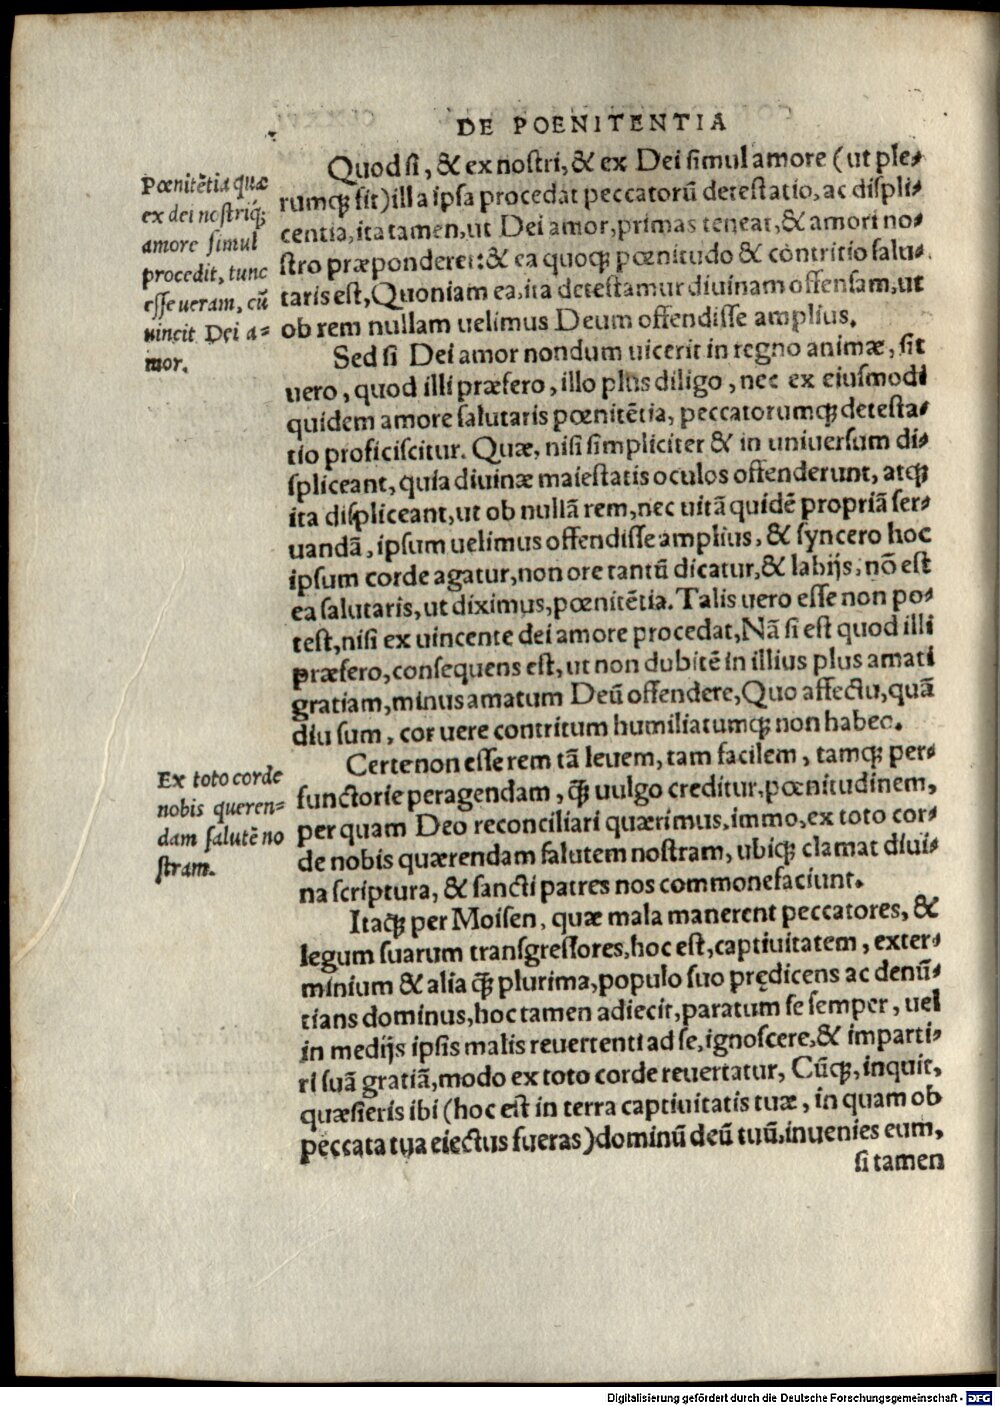 DE POENITENTIA
Quod si, & ex nostri, & ex Dei simul amore (ut ple-
rumq; fit) illa ipsa procedat peccatorũ detestatio, ac displi-
centia, ita tamen, ut Dei amor, primas teneat, & amori no-
stro præponderet: & ea quoq; pœnitudo & cõntritio salu-
taris est, Quoniam ea, ita detestamur diuinam offensam, ut
ob rem nullam uelimus Deum offendisse amplius.
Pœnitẽtia quæ
ex dei nostriq;
amore simul
procedit, tunc
esse ueram, cũ
uincit Dei a-
mor.
Sed si Dei amor nondum uicerit in regno animæ, sit
uero, quod illi præfero, illo plus diligo, nec ex eiusmodi
quidem amore salutaris pœnitẽtia, peccatorumq; detesta-
tio proficiscitur. Quæ, nisi simpliciter & in uniuersum di-
spliceant, quia diuinæ maiestatis oculos offenderunt, atq;
ita displiceant, ut ob nullã rem, nec uitã quidẽ propriã ser-
uandã, ipsum uelimus offendisse amplius, & syncero hoc
ipsum corde agatur, non ore tantũ dicatur, & labijs, nõ est
ea salutaris, ut diximus, pœnitẽtia. Talis uero esse non po-
test, nisi ex uincente dei amore procedat, Nã si est quod illi
præfero, consequens est, ut non dubitẽ in illius plus amati
gratiam, minus amatum Deũ offendere, Quo affectu, quã
diu sum, cor uere contritum humiliatumq; non habeo.
Certe non esse rem tã leuem, tam facilem, tamq; per-
functorie peragendam, q̃; uulgo creditur, pœnitudinem,
per quam Deo reconciliari quærimus, immo, ex toto cor-
de nobis quærendam salutem nostram, ubiq; clamat diui-
na scriptura, & sancti patres nos commonefaciunt.
Ex toto corde
nobis queren-
dam salutẽ no
stram.
Itaq; per Moisen, quæ mala manerent peccatores, &
legum suarum transgressores, hoc est, captiuitatem, exter-
minium & alia q̃; plurima, populo suo prędicens ac denũ-
tians dominus, hoc tamen adiecit, paratum se semper, uel
in medijs ipsis malis reuertenti ad se, ignoscere, & imparti-
ri suã gratiã, modo ex toto corde reuertatur, Cũq;, inquit,
quæsieris ibi (hoc est in terra captiuitatis tuæ, in quam ob
peccata tua eiectus fueras) dominũ deũ tuũ, inuenies eum,
si tamen
Digitalisierung gefördert durch die Deutsche Forschungsgemeinschaft - DFG